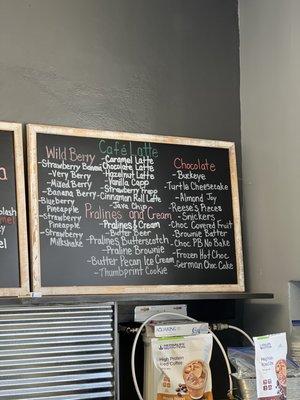 Wild Berry
-Strawberry Banana
-Very Berry
-Mixed Berry
-Banana Berry
-Blueberry
Pineapple
-Strawberry
Pineapple
-Strawberry
Milkshake
Café Latte
-Caramel Latte
-Chocolate Latte
-Hazelnut Latte
-Vanilla Capp
-Strawberry Frapp
-Cinnamon Roll Latte
-Java Chip
Pralines and Cream
-Pralines & Cream
-Butter Beer
-Pralines Butterscotch
-Praline Brownie
-Butter Pecan Ice Cream
-Thumbprint Cookie
Chocolate
-Buckeye
-Turtle Cheesecake
-Almond Joy
-Reese's Pieces
-Snickers
-Choc Covered Fruit
-Brownie Batter
-Choc PB No Bake
-Frozen Hot Choc
-German Choc Cake
HERBALIFE
NUTRITION
High Protein
Iced Coffee